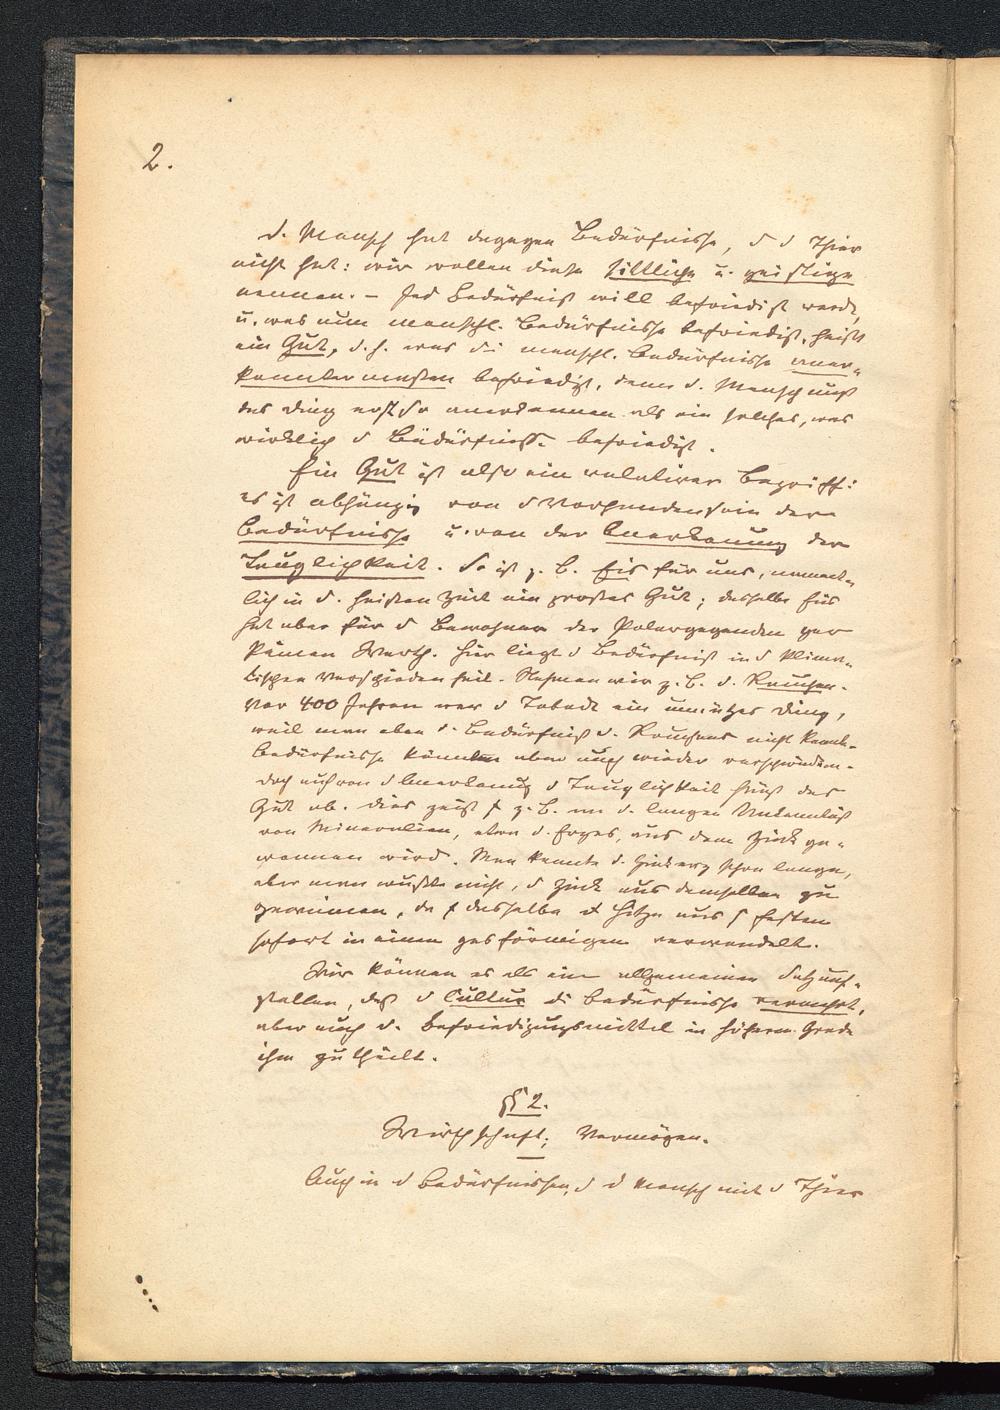 2.
d. Mensch hat dagegen Bedürfnisse, d d Thier
nicht hat: wir wollen diese sittliche u. geistige
nennen. – Jed Bedürfniß will befriedigt werd,
u. was nun menschl. Bedürfnisse befriedigt, heißt
ein Gut, d. h. was di menschl. Bedürfnisse aner-
kanntermaßen befriedigt, denn d. Mensch muß
das Ding erst so anerkennen als ein solches, was
wirklich d Bedürfnisse befriedigt.
Ein Gut ist also ein relativer Begriff:
es ist abhängig von d Vorhandensein der
Bedürfnisse u. von der Anerkennung der
Tauglichkeit. So ist z. B. Eis für uns, nament-
lich in d. heißen Zeit ein großes Gut; dasselbe Eis
hat aber für d Bewohner der Polargegenden gar
keinen Werth. Hier liegt d Bedürfniß in d klima-
tischen Verschiedenheit. Nehmen wir z. B. d. Rauchen.
Vor 400 Jahren war d Taback ein unnützes Ding,
weil man eben d. Bedürfniß d. Rauchens nicht kannte.
Bedürfnisse können aber auch wieder verschwinden.
Doch auch von d Anerkennung d Tauglichkeit hängt das
Gut ab. Dies zeigt s z. B. an d. langen Unkenntniß
von Mineralien, etwa d. Erzes, aus dem Zink ge-
wonnen wird. Man kannte d. Zinkerz schon lange,
aber man wußte nicht, d Zink aus demselben zu
gewinnen, da s dasselbe Hitze aus festen
sofort in einen gasförmigen verwandelt.
Wir können es als ein allgemeinen Satz auf-
stellen, daß d Cultur di Bedürfnisse vermehrt,
aber auch d. Befriedigungsmittel in höherm Grade
ihm zutheilt.
§ 2.
Wirthschaft; Vermögen.
Auch in d Bedürfnissen, d d Mensch mit d Thier